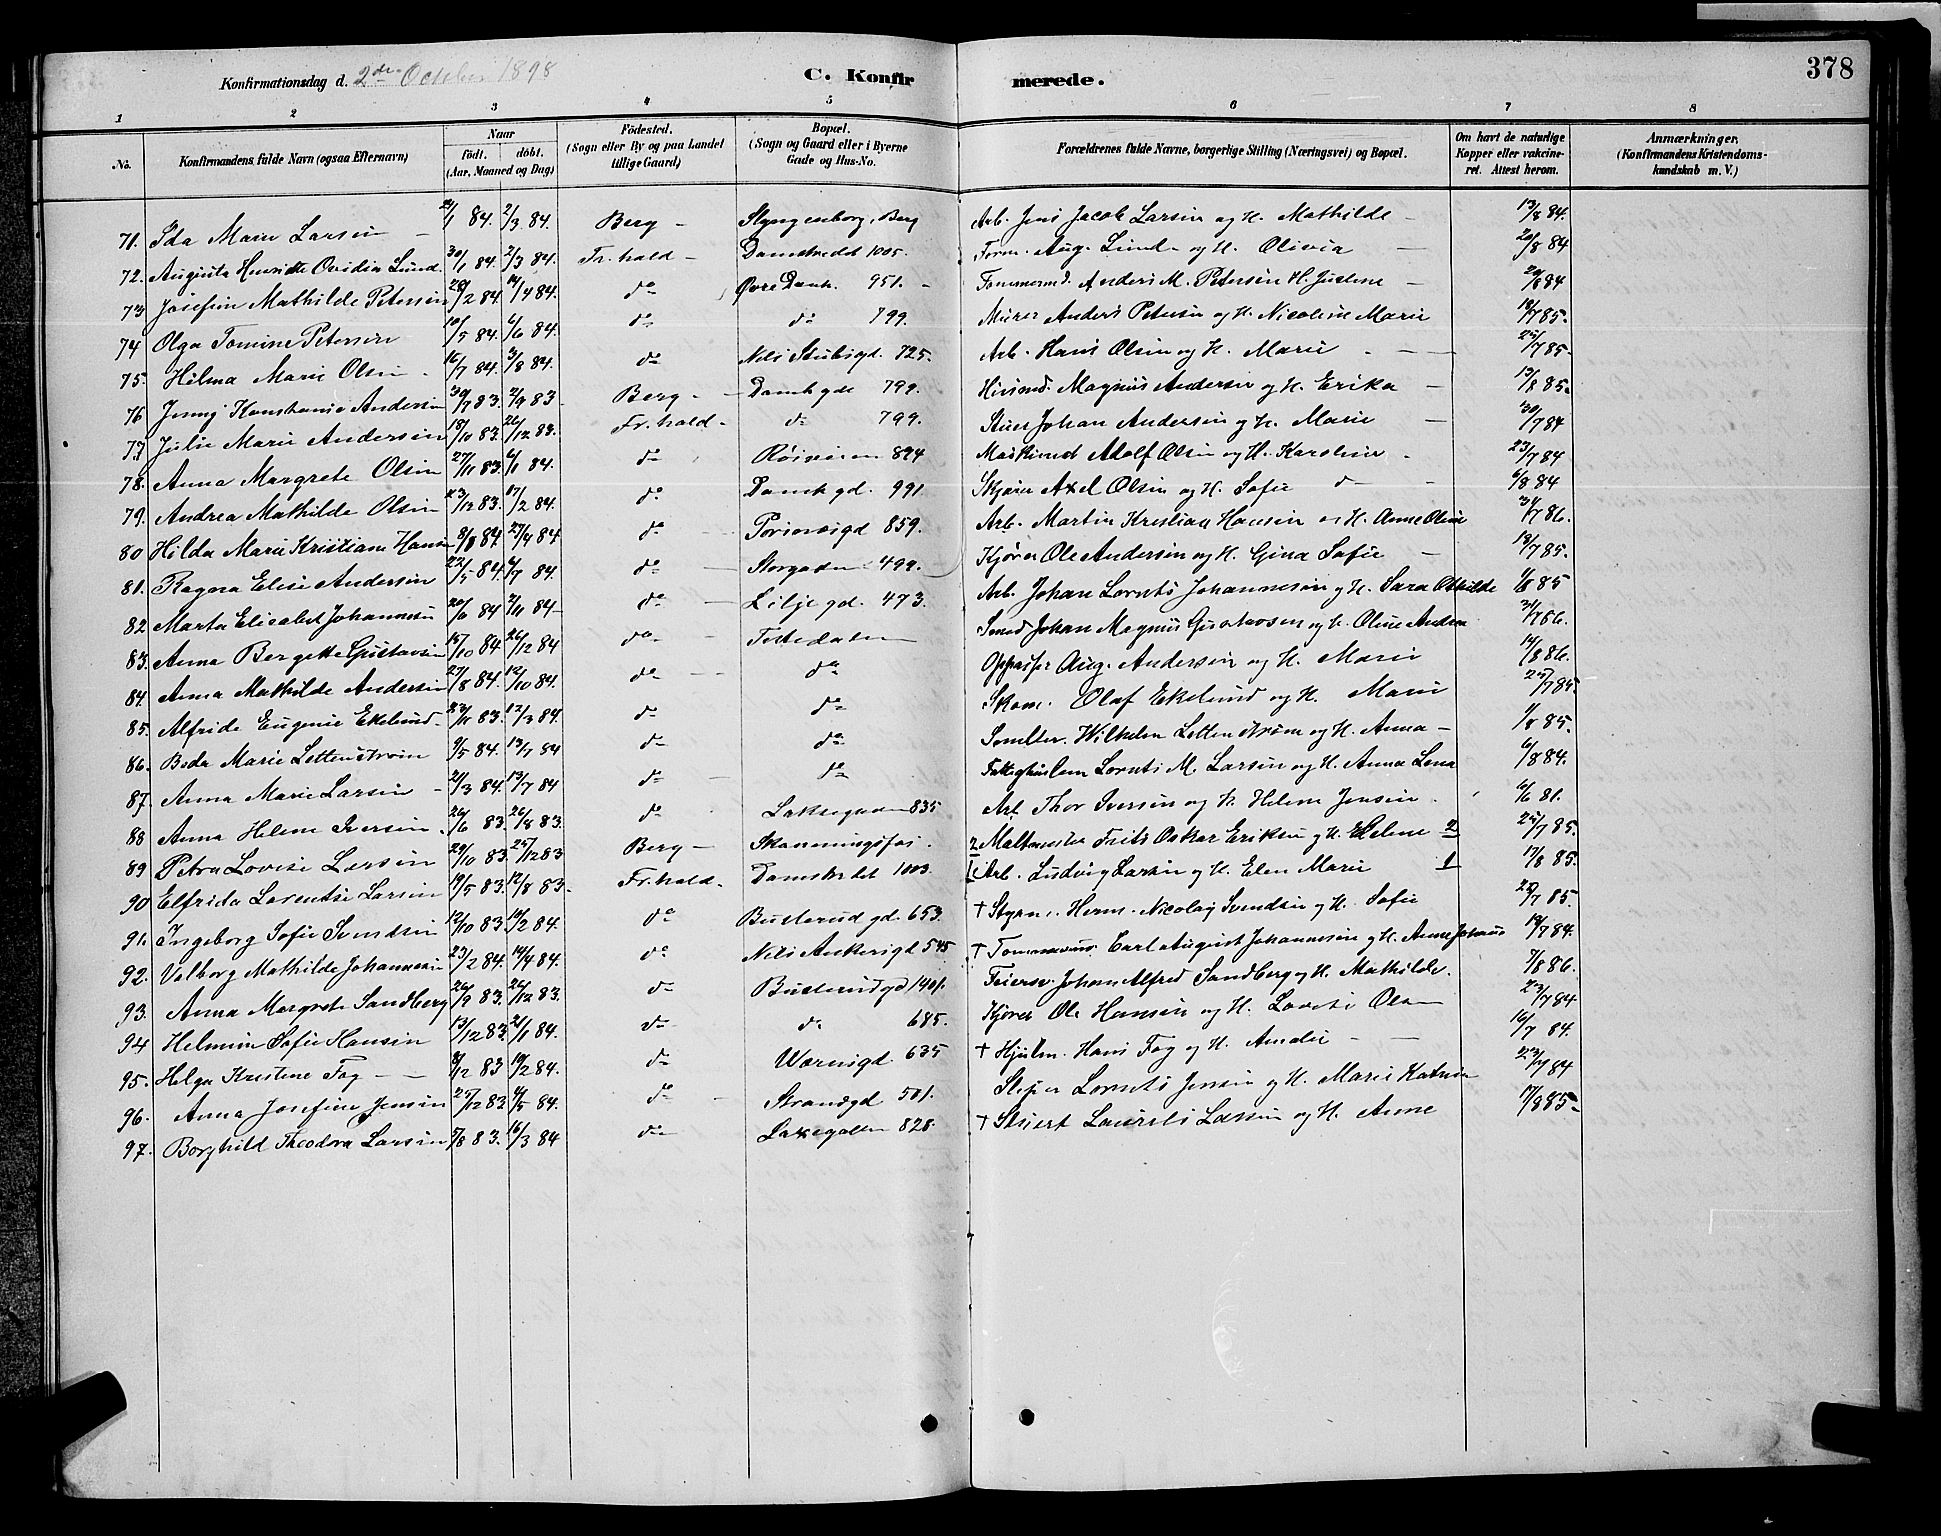 378
Konfirmationsdag d. 2den October 1898 C. Konfirmerede.
1 2 3 4 5 6 7 8
No. Konfirmandens fulde Navn (ogsaa Efternavn) Naar født. døbt. (Aar, Maaned og Dag) Fødested. (Sogn eller By og paa Landet tillige Gaard) Bopæl. (Sogn og Gaard eller i Byerne Gade og Hus-No. Forældrenes fulde Navne, borgerlige Stilling (Næringsvei) og Bopæl. Om havt de naturlige Kopper eller vakcineret. Attest herom. Anmærkninger. (Konfirmandens Kristendomskundskab m. V.)
71. Ida Marie Larsen 84. 2/3 84. Berg - Berg Arb. Jens Jacob Larsen og H. Mathilde - 13/8 84.
72. Augusta Henriette Ovidia Lund 30/1 84. 2/3 84. Fr.hald - Damstredet 1005. Form. Aug. Lund og H. Olivia - 20/8 84
73 Josefine Mathilde Petersen 28/2 84. 14/4 84. do Øvre Bank. 951. - Tømmermd. Anders M. Petersen H. Justine - 20/8 84
74 Olga Tomine Petersen 10/5 84. 6/6 84. do do 799. Murer Anders Petersen og H. Nicoline Marie 18/7 85.
75. Hilma Marie Olsen 16/7 84. 3/8 84. do Nils Stubsgd. 725. Arb. Hans Olsen og H. Marie - 25/7 85.
76 Jenny Konstanse Andersen 30/7 83. 2/9 83 Berg - Damhgde 799. Husmd. Magnus Andersen og H. Erika - 13/8 85.
77 Julie Marie Andersen 18/10 83. 26/12 83. Fr.hald - do 799. Johan Andersen og H. Marie - 30/7 84
78. Anna Margrete Olsen 27/11 83. 6/1 84. do 894 Maskinmd Adolf Olsen og H. Karoline - 23/7 84
79. Andrea Mathilde Olsen 23/12 83. 17/2 84. do Damhgd. 991 Skjærer Axel Olsen og H. Sofie - 6/8 84
80 Hilda Marie Kristiane Hansen 8/8 84. 27/4 84 do 859. Arb. Martin Kristian Hansen og H. Anne Oline 31/7 86.
81. Ragna Elise Andersen 22/5 84. 6/7 84. do Storgaden 499. Kjører Ole Andersen og H. Gina Sofie - 18/7 85.
82 Marta Elisabet Johannesen 20/6 84 2/11 84 do Liljegd. 473. Arb. Johan Lornts Johannesen og H. Sara Othilde 1/8 85
83. Anna Bergette Gustavsen 15/10 84 26/12 84 do Tistedalen Smed Johan Magnus Gustavsen og H. Oline Andrea 31/7 86.
84. Anna Mathilde Andersen 27/8 84. 12/10 84. do do Oppasser Aug. Andersen og H. Marie 14/8 86.
85. Alfride Eugenie Ekelund 23/11 83. 12/3 84. do do Skom. Olaf Ekelund og H. Marie 25/7 85.
86. Beda Marie Lettenstrøm 9/5 84. 13/7 84 do do Wilhelm Lettenstrøm og H. Anna - 1/8 85.
87. Anna Marie Larsen 21/3 84. 13/7 84 do do Fattighuslem Lornts M. Larsen og H. Anna Lena 6/8 84.
88 Anna Helene Iversen 26/6 83. 26/8 83. do Laksegaden 835 Arb Thor Iversen og H. Helene Jensen 6/6 81.
89 Petra Lovise Larsen 29/10 83. 25/12 83 Berg - Skanningsfos. 2 Maltmester Frits Oskar Eriksen og H. Helene 2 25/7 85.
90 Elfrida Lorentse Larsen 19/5 83. 12/8 83. Fr.hald. Damstredet 1003. 1 Arb. Ludvig Larsen og H. Elen Marie 1 17/8 85.
91. Ingeborg Sofie Svendsen 12/10 83. 10/2 84. do Busterudgd. 653. † Herm. Nicolay Svendsen og H. Sofie 25/7 85.
92. Valborg Mathilde Johannesen 23/2 84. 14/4 84. do Nils Ankersgd 545 † Tømmermd. Carl August Johannesen og H. Anne Johanne 19/7 84.
93. Anna Margrete Sandberg 26/9 83. 26/12 83. do Busterudgd 1401. Feiersv. Johan Alfred Sandberg og H. Mathilde. 7/8 86.
94 Helmine Sofie Hansen 13/12 83. 20/1 84. do do 685. Kjører Ole Hansen og H. Lovise Olsen 23/7 84
95. Helga Kristine Fag - 8/12 83 10/2 84. do Wærnsgd. 635 † Hjulm. Hans Fag og H. Amalie - 16/7 84.
96. Anna Josefine Jensen 25/12 83. 4/5 84. do Strandgd 501. Lornts Jensen og H. Marie Katrine 23/7 84
97. Borghild Theodora Larsen 5/8 83. 16/3 84 do Laksegaden 828. † Laurits Larsen og H. Anne 17/8 85.